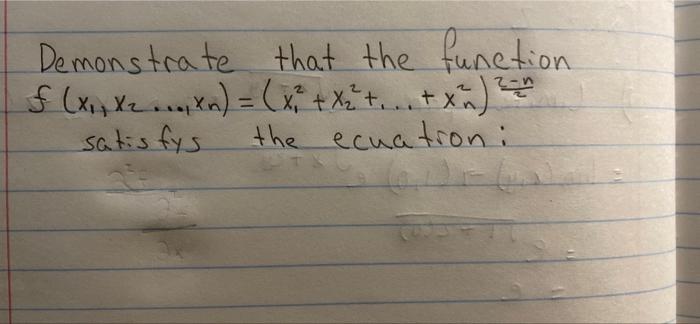 Demonstrate that the function
f (x₁, x₂ ..., xn) = (x₁² + x₂² + ... + xn²)^(2-n)/2
satisfys the ecuatron: